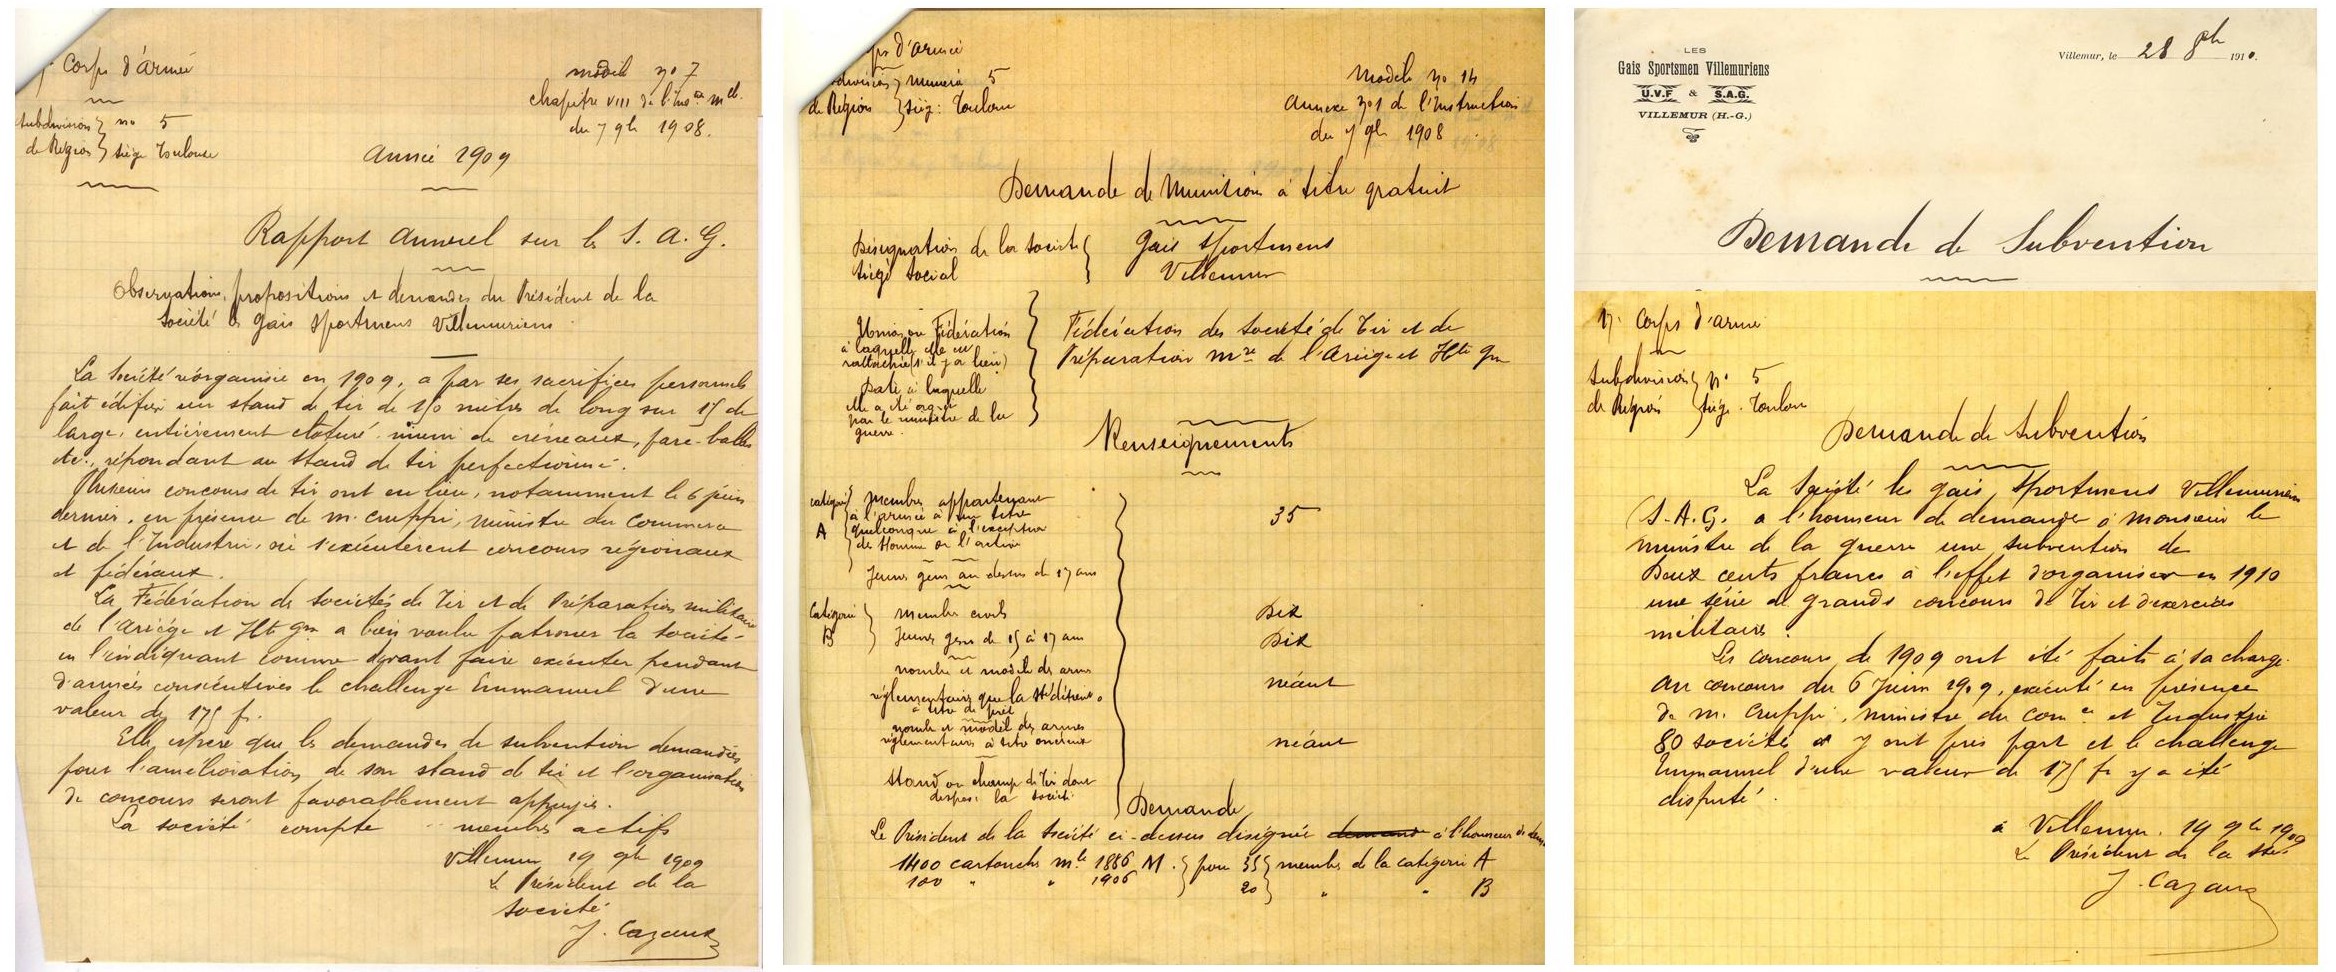 Corps d'Armée
Subdivision } no 5
de Région } siège Toulouse
modèle no 7
chapitre VIII de l'Inson melle
du 7 9bre 1908.
Année 1909
Rapport Annuel sur la S. A. G.
Observations, propositions et demandes du Président de la
Société des Gais Sportmens Villemuriens
La Société réorganisée en 1909, a par ses sacrifices personnels
fait édifier un stand de tir de 150 mètres de long sur 15 de
large, entièrement cloturé, muni de créneaux, pare-balles
etc., répondant au stand de tir perfectionné.
Plusieurs concours de tir ont eu lieu, notamment le 6 juin
dernier, en présence de M. Cruppi, Ministre du Commerce
et de l'Industrie, où s'exécutèrent concours régionaux
et fédéraux.
La Fédération des Sociétés de Tir et de Préparation militaire
de l'Ariège et Hte Gne a bien voulu patroner la société
en l'indiquant comme devant faire exécuter pendant
d'années consécutives le challenge Emmanuel d'une
valeur de 175 fr.
Elle espère que les demandes de subvention demandées
pour l'amélioration de son stand de tir et l'organisation
de concours seront favorablement appuyées.
La société compte membres actifs
Villemur, 19 9bre 1909
Le Président de la
Société
J. Cazaux
Corps d'Armée
Subdivision } numéro 5
de Région } siège : Toulouse
Modèle no 14
Annexe no 1 de l'Instruction
du 7 9bre 1908
Demande de Munitions à titre gratuit
Désignation de la Société { Gais Sportmens
Siège Social { Villemur
Union ou Fédération
à laquelle elle est
rattachée (s'il y a lieu)
Date à laquelle
elle a été
par le ministre de la
guerre.
Fédération des Sociétés de Tir et de
Préparation mre de l'Ariège et Hte Gne
Renseignements
Catégorie A { Membres appartenant
à l'armée à un titre
quelconque à l'exception
de Homme de l'active
35
Jeunes gens au dessus de 17 ans
Catégorie B } membres civils Dix
Jeunes gens de 15 à 17 ans Dix
nombre et modèle des armes
réglementaires que la Sté détient
à titre de prêt
néant
nombre et modèle des armes
réglementaires à titre onéreux
néant
Stand ou champ de Tir dont
dispose la société
Demande
Le Président de la Société ci-dessus désignée demande à l'honneur de
1400 cartouches mle 1886 M. } pour 35 } membres de la catégorie A
100 " " 1906 20 } " " B
LES
Gais Sportsmen Villemuriens
U.V.F & S.A.G.
VILLEMUR (H.-G.)
Villemur, le 28 8bre 1910.
Demande de Subvention
17e Corps d'armée
Subdivision } no 5
de Région } siège. Toulouse
Demande de Subvention
La Société les gais Sportmens Villemuriens
(S.A.G. a l'honneur de demander à Monsieur le
Ministre de la guerre une subvention de
Deux cents francs à l'effet d'organiser en 1910
une série de grands concours de Tir et d'exercices
militaires.
Les concours de 1909 ont été faits à sa charge.
Au concours du 6 Juin 1909, exécuté en présence
de M. Cruppi, ministre du Comce et Industrie
80 sociétés y ont pris part et le challenge
Emmanuel d'une valeur de 175 fr y a été
disputé.
à Villemur, 19 9bre 1909
Le Président de la Sté.
J. Cazaux